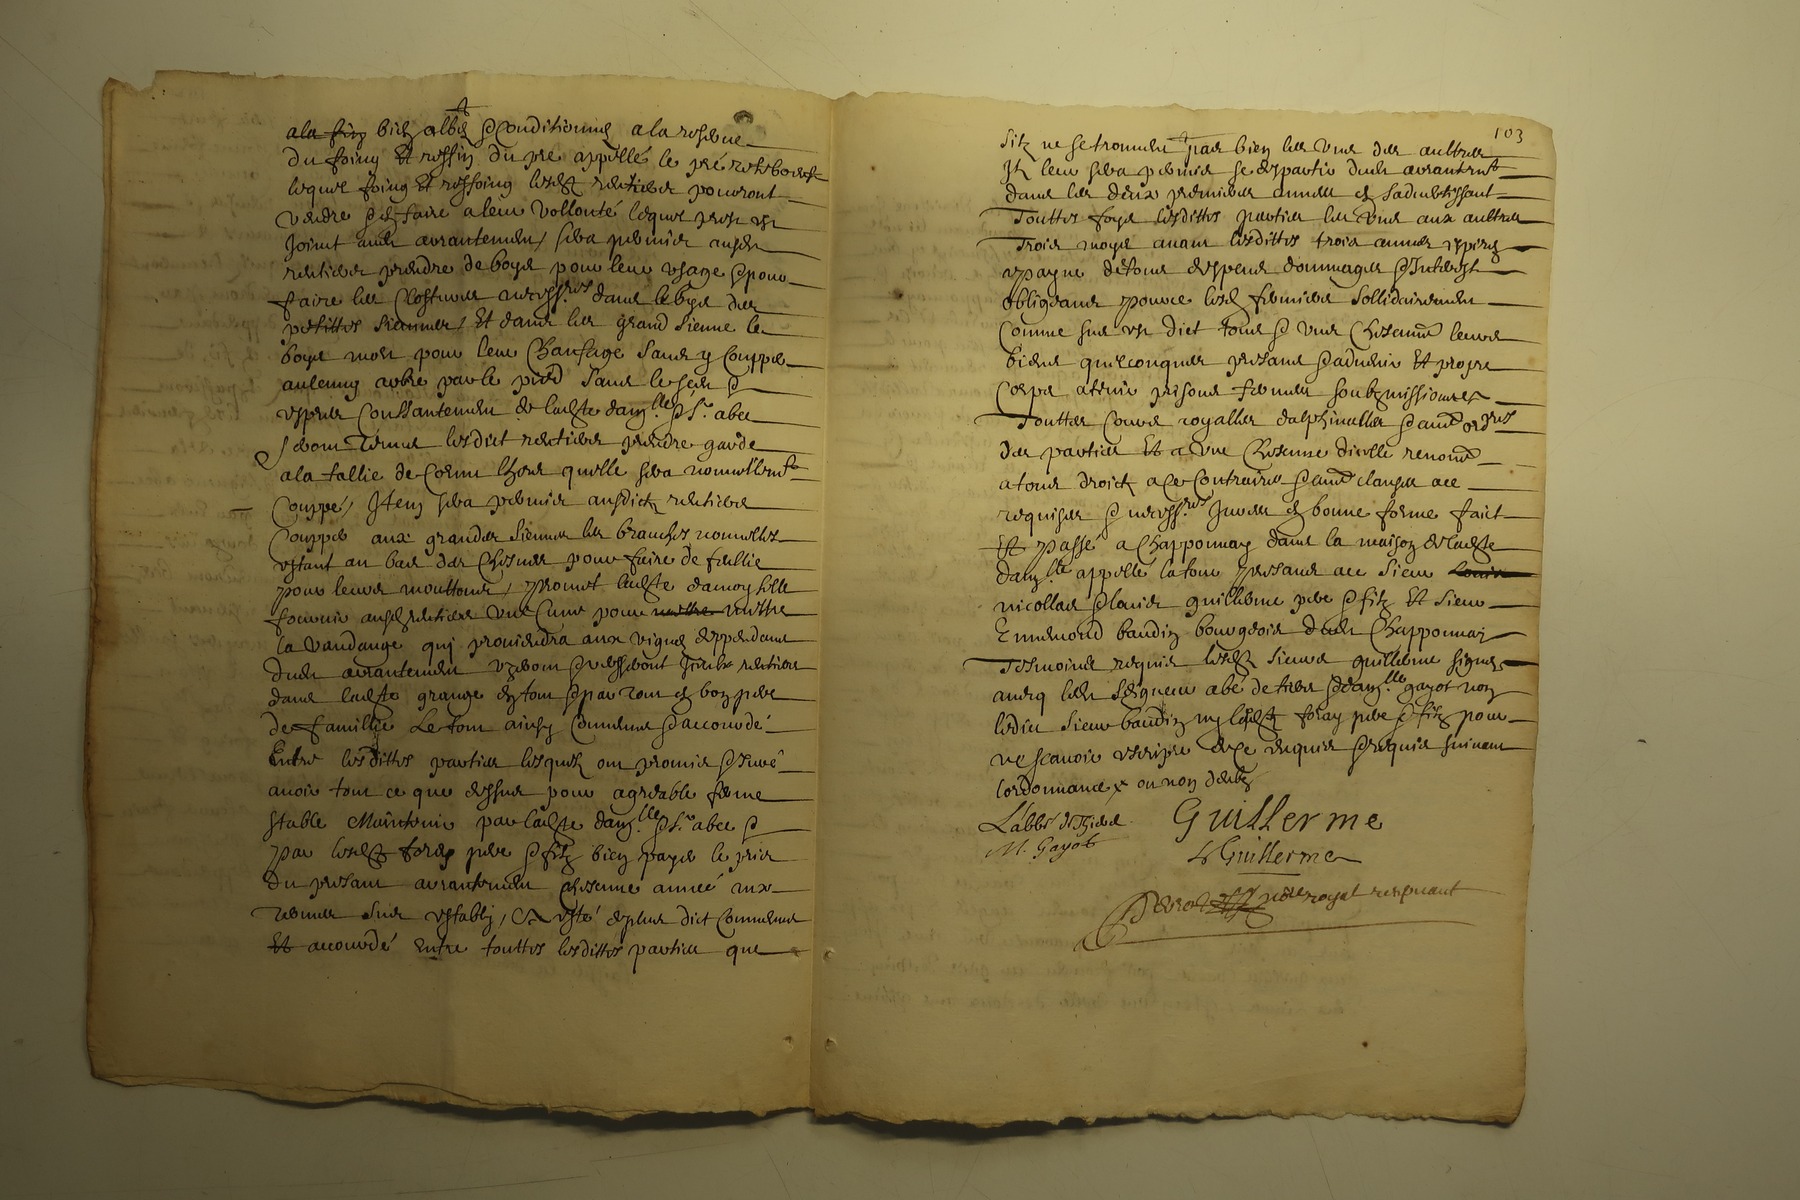 a la fin bien albés & conditionné a la reserve
du foing Et reffin du pré appéllé le pré
lequel foing Et reffoing lesdtz rentiers pourront
vendre & en faire a leur vollonté lequel prez est
Joinct audt arrantement, sera permier ausdtz
rentiers prendre de boys pour leur usage & pour
faire les Clostures necess.res dans le boys des
petittes siennes, Et dans les grand sienne le
boys mort pour leur Chaufage sans y Coupper
aulcung arbre par le pied sans le sceu &
expres Consantement de ladte dam.lle & sr. abbé
seront tenus lesdict rentiers prendre garde
a la tallie de lhors quelle sera nouvellemt
Couppé, Item sera permier ausdictz rentiers
Coupper aux grandes siennes les branches nouvelles
estant au bas des Chesnes pour faire de feullie
pour leurs mouttons, promet ladte damoyselle
fournir ausdz rentiers une Cuve pour mettre mettre
la vandange qui proviendra aux vignes deppendant
dudt arrantement rentiers
dans ladte grange en tout & par tout en bon pere
de famillye Le tout ainsy Convenu & accordé
Entre lesdittes parties lesquelz ont promis & juré
avoir tout ce que dessus pour agreable ferme
stable Maintenir par ladte dam.lle & sr. abbé &
par lesdtz foray pere & filz bien payer le prix
du presant arrantement chescune année aux
termes sus establj, Ca esté deplus dict Convenu
Et accordé Entre touttes lesdittes parties que
103
silz ne se trouvent pas bien les uns des aultres
Il leur sera permis se despartir dudt arrantemt
dans les deux premieres années en sadvertissant
Touttes foys lesdittes parties les uns aux aultres
Trois moys avant lesdittes trois années expirés
a payne detous despens dommages & Interestz
obligeant pource lesdz fermiers sollidairement
Comme sus est dict tous & uns Chescuns leurs
biens quelconques presans & advenir Et propre
Corps a tenir prison fermer soubzmissions
Touttes Cours royalles dalphinalles & aues ordres
des parties Et a une Chescune dicelle renonct
a tous droictz a ce Contraires & aues clauses ace
requises & necess.res Jurées en bonne forme faict
Et passé a Chapponnay dans la maison de ladte
dam.lle appellé la tour presans ace sieur Louis
nicollas & louis guillerme pere & filz Et sieur
Ennemond baudin bourgeois dudt Chapponnay
Tesmoins requis lesdtz sieurs guillerme signes
avecq ledt seigneur abé de & dam.lle gayot non
ledict sieur baudin ny lesdtz foray pere & filz pour
ne scavoir escripre dece enquis & requis suivant
lordonnance x ou non
L'abbé de
M. Gayot
Guillerme
L Guillerme
nore royal recepvant